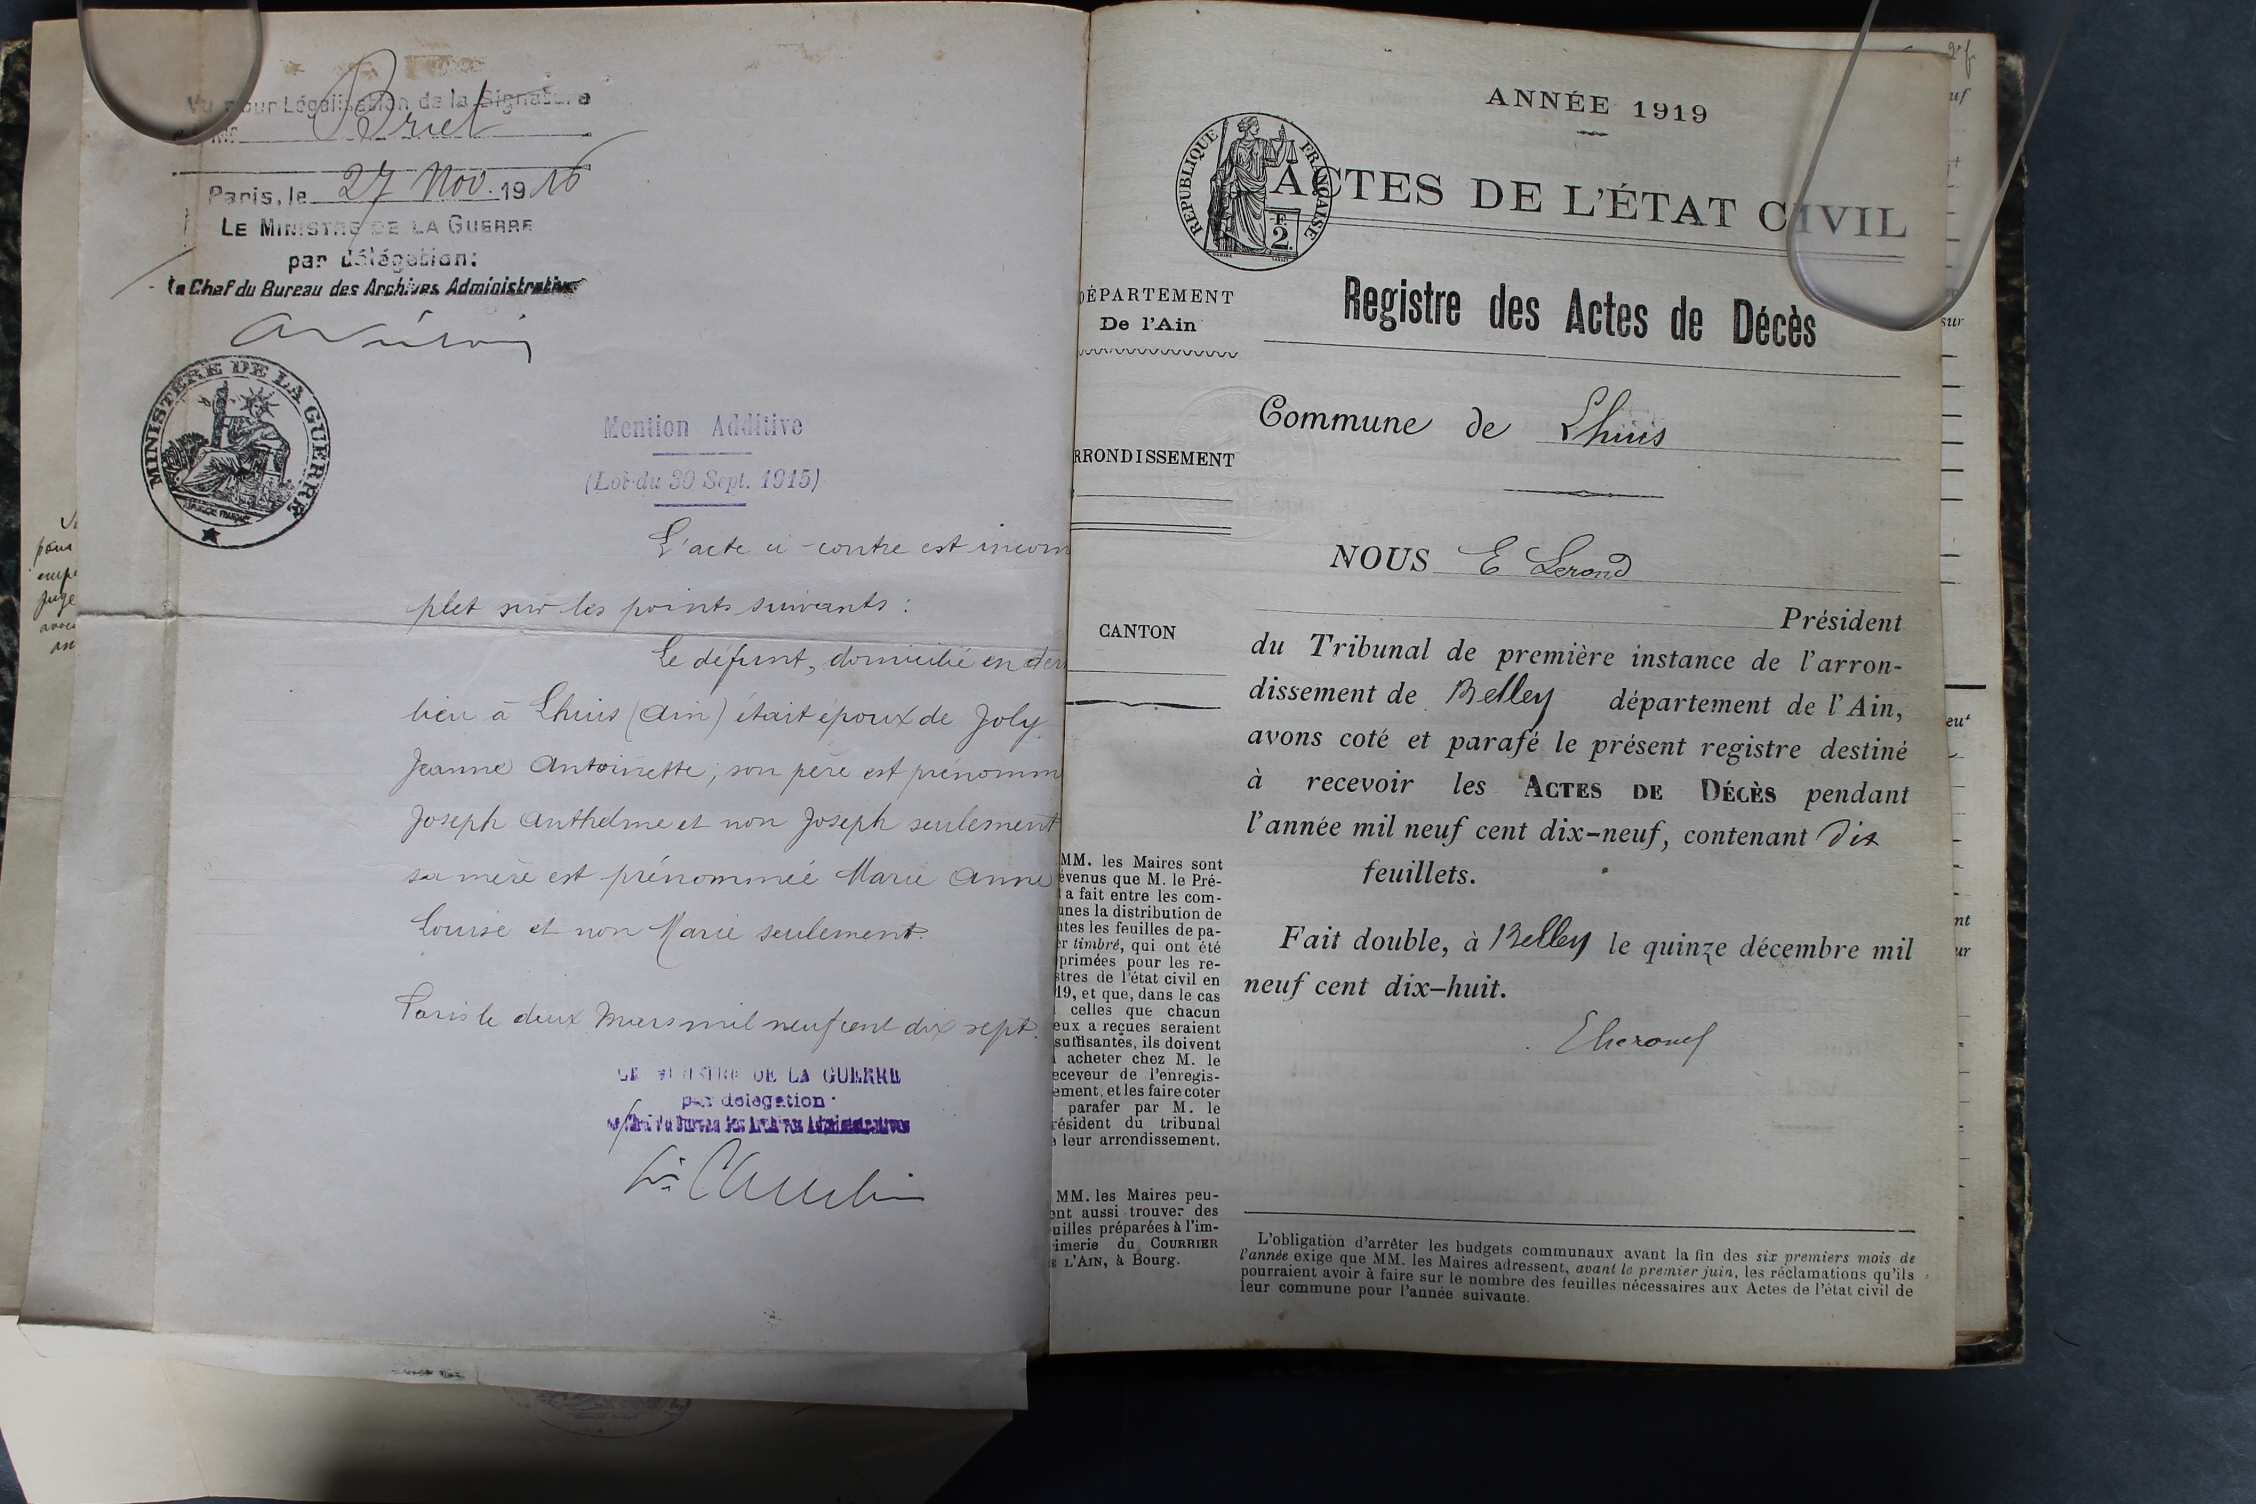 Vu pour Légalisation de la Signature
Briet
Paris, le 27 Nov. 1916
LE MINISTRE DE LA GUERRE
par délégation:
Le Chef du Bureau des Archives Administratives
MINISTÈRE DE LA GUERRE
Mention Additive
(Loi du 30 Sept. 1915)
L'acte ci-contre est incom
plet sur les points suivants :
Le défunt, domicilié en der
lieu à Lhuis (Ain) était époux de Joly
Jeanne Antoinette; son père est prénomm
Joseph Anthelme et non Joseph seulement
sa mère est prénommée Marie Anne
Louise et non Marie seulement.
Paris le deux Mars mil neuf cent dix sept.
LE MINISTRE DE LA GUERRE
par délégation
Le Chef du Bureau des Archives Administratives
pour
juge
ANNÉE 1919
RÉPUBLIQUE FRANÇAISE
2
ACTES DE L'ÉTAT CIVIL
DÉPARTEMENT
De l'Ain
RRONDISSEMENT
CANTON
MM. les Maires sont
évenus que M. le Pré-
a fait entre les com-
unes la distribution de
utes les feuilles de pa-
er timbré, qui ont été
primées pour les re-
stres de l'état civil en
19, et que, dans le cas
celles que chacun
eux a reçues seraient
suffisantes, ils doivent
acheter chez M. le
eceveur de l'enregis-
ement, et les faire coter
parafer par M. le
résident du tribunal
leur arrondissement.
MM. les Maires peu-
ent aussi trouver des
uilles préparées à l'im-
imerie du COURRIER
E L'AIN, à Bourg.
Registre des Actes de Décès
Commune de Lhuis
NOUS E Lerond
Président
du Tribunal de première instance de l'arron-
dissement de Belley département de l'Ain,
avons coté et parafé le présent registre destiné
à recevoir les ACTES DE DÉCÈS pendant
l'année mil neuf cent dix-neuf, contenant Dix
feuillets.
Fait double, à Belley le quinze décembre mil
neuf cent dix-huit.
L'obligation d'arrêter les budgets communaux avant la fin des six premiers mois de
l'année exige que MM. les Maires adressent, avant le premier juin, les réclamations qu'ils
pourraient avoir à faire sur le nombre des feuilles nécessaires aux Actes de l'état civil de
leur commune pour l'année suivante.
uf
sur
nt
ur